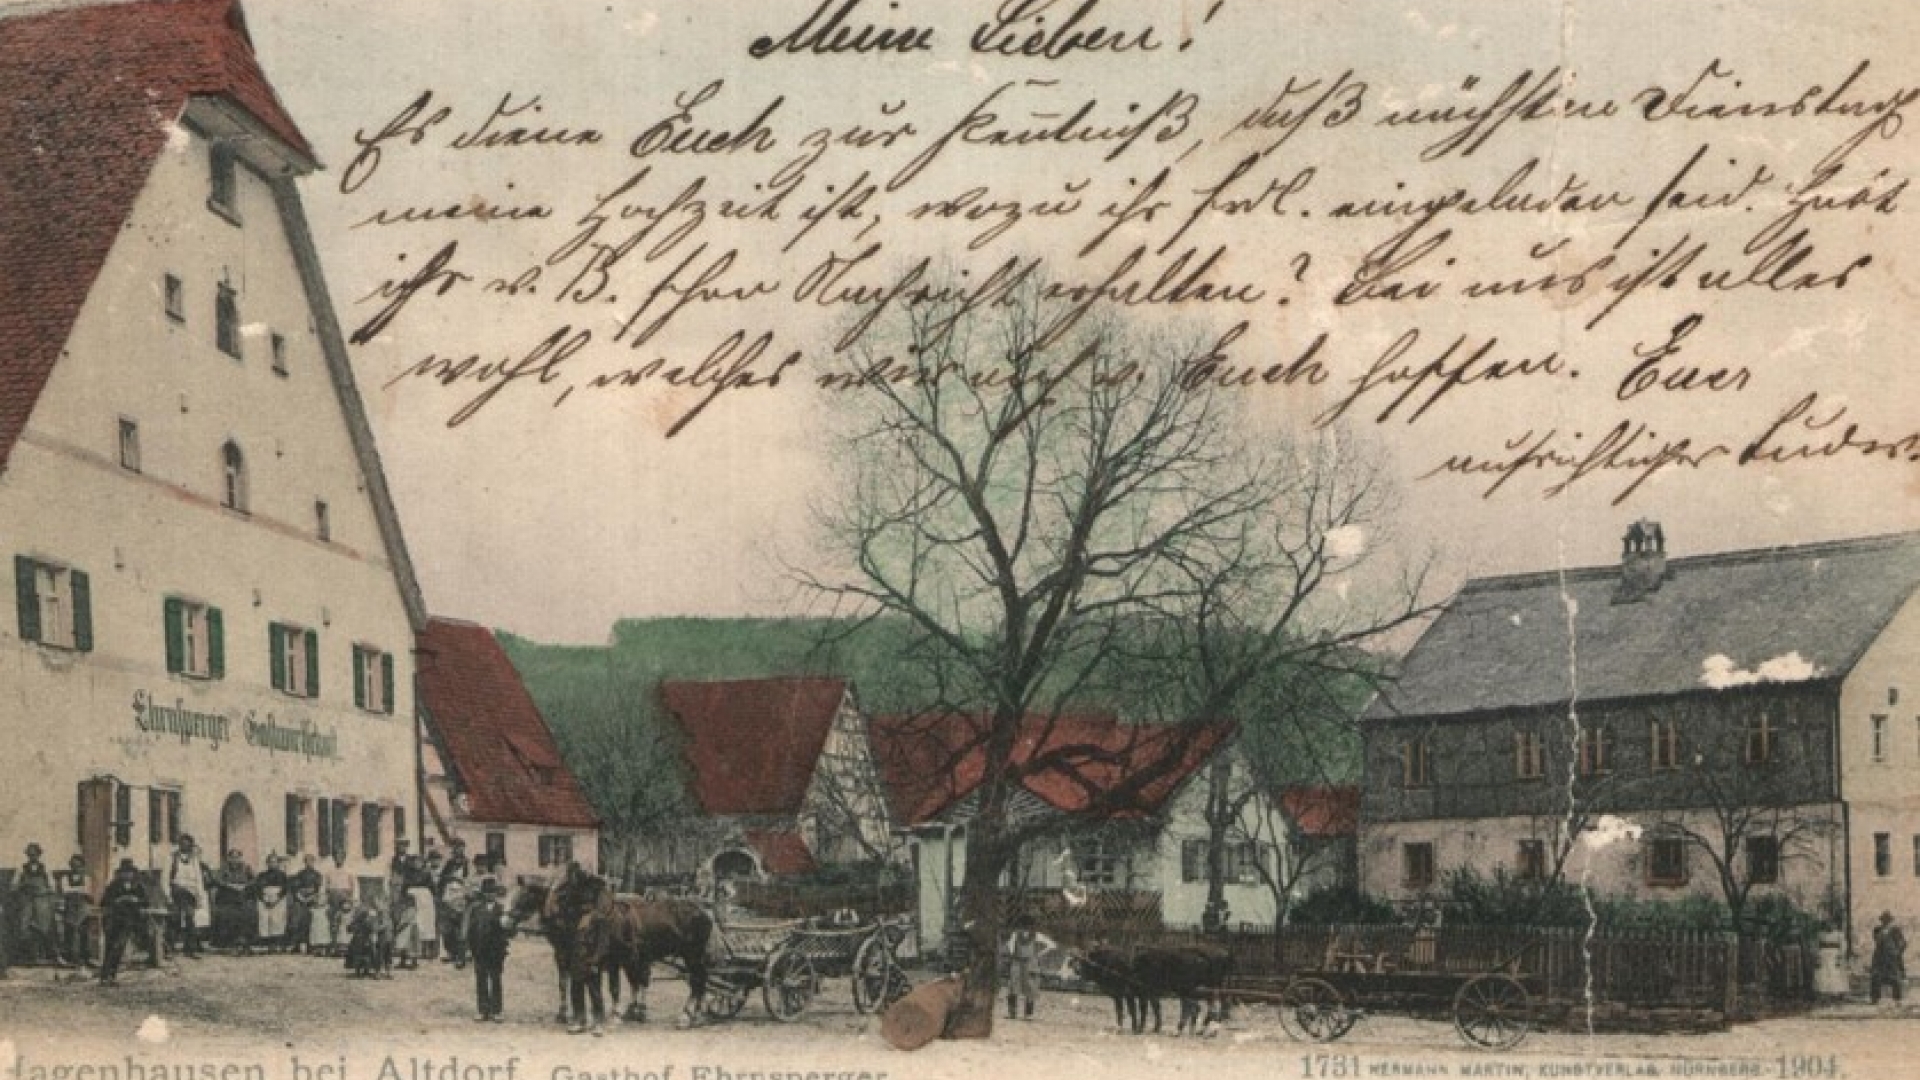 Meine Lieben!
Es diene Euch zur Kentniß, daß nächsten Dienstag
meine Hochzeit ist, wozu ihr frdl. eingeladen seid. Habt
ihr v. B. schon Nachricht erhalten? Bei uns ist alles
wohl, welches wir auch v. Euch hoffen. Euer
aufrichtiger
Ehrnsperger Gastwirtschaft
Hagenhausen bei Altdorf. Gasthof Ehrnsperger
1731 HERMANN MARTIN, KUNSTVERLAG, NÜRNBERG. 1904.